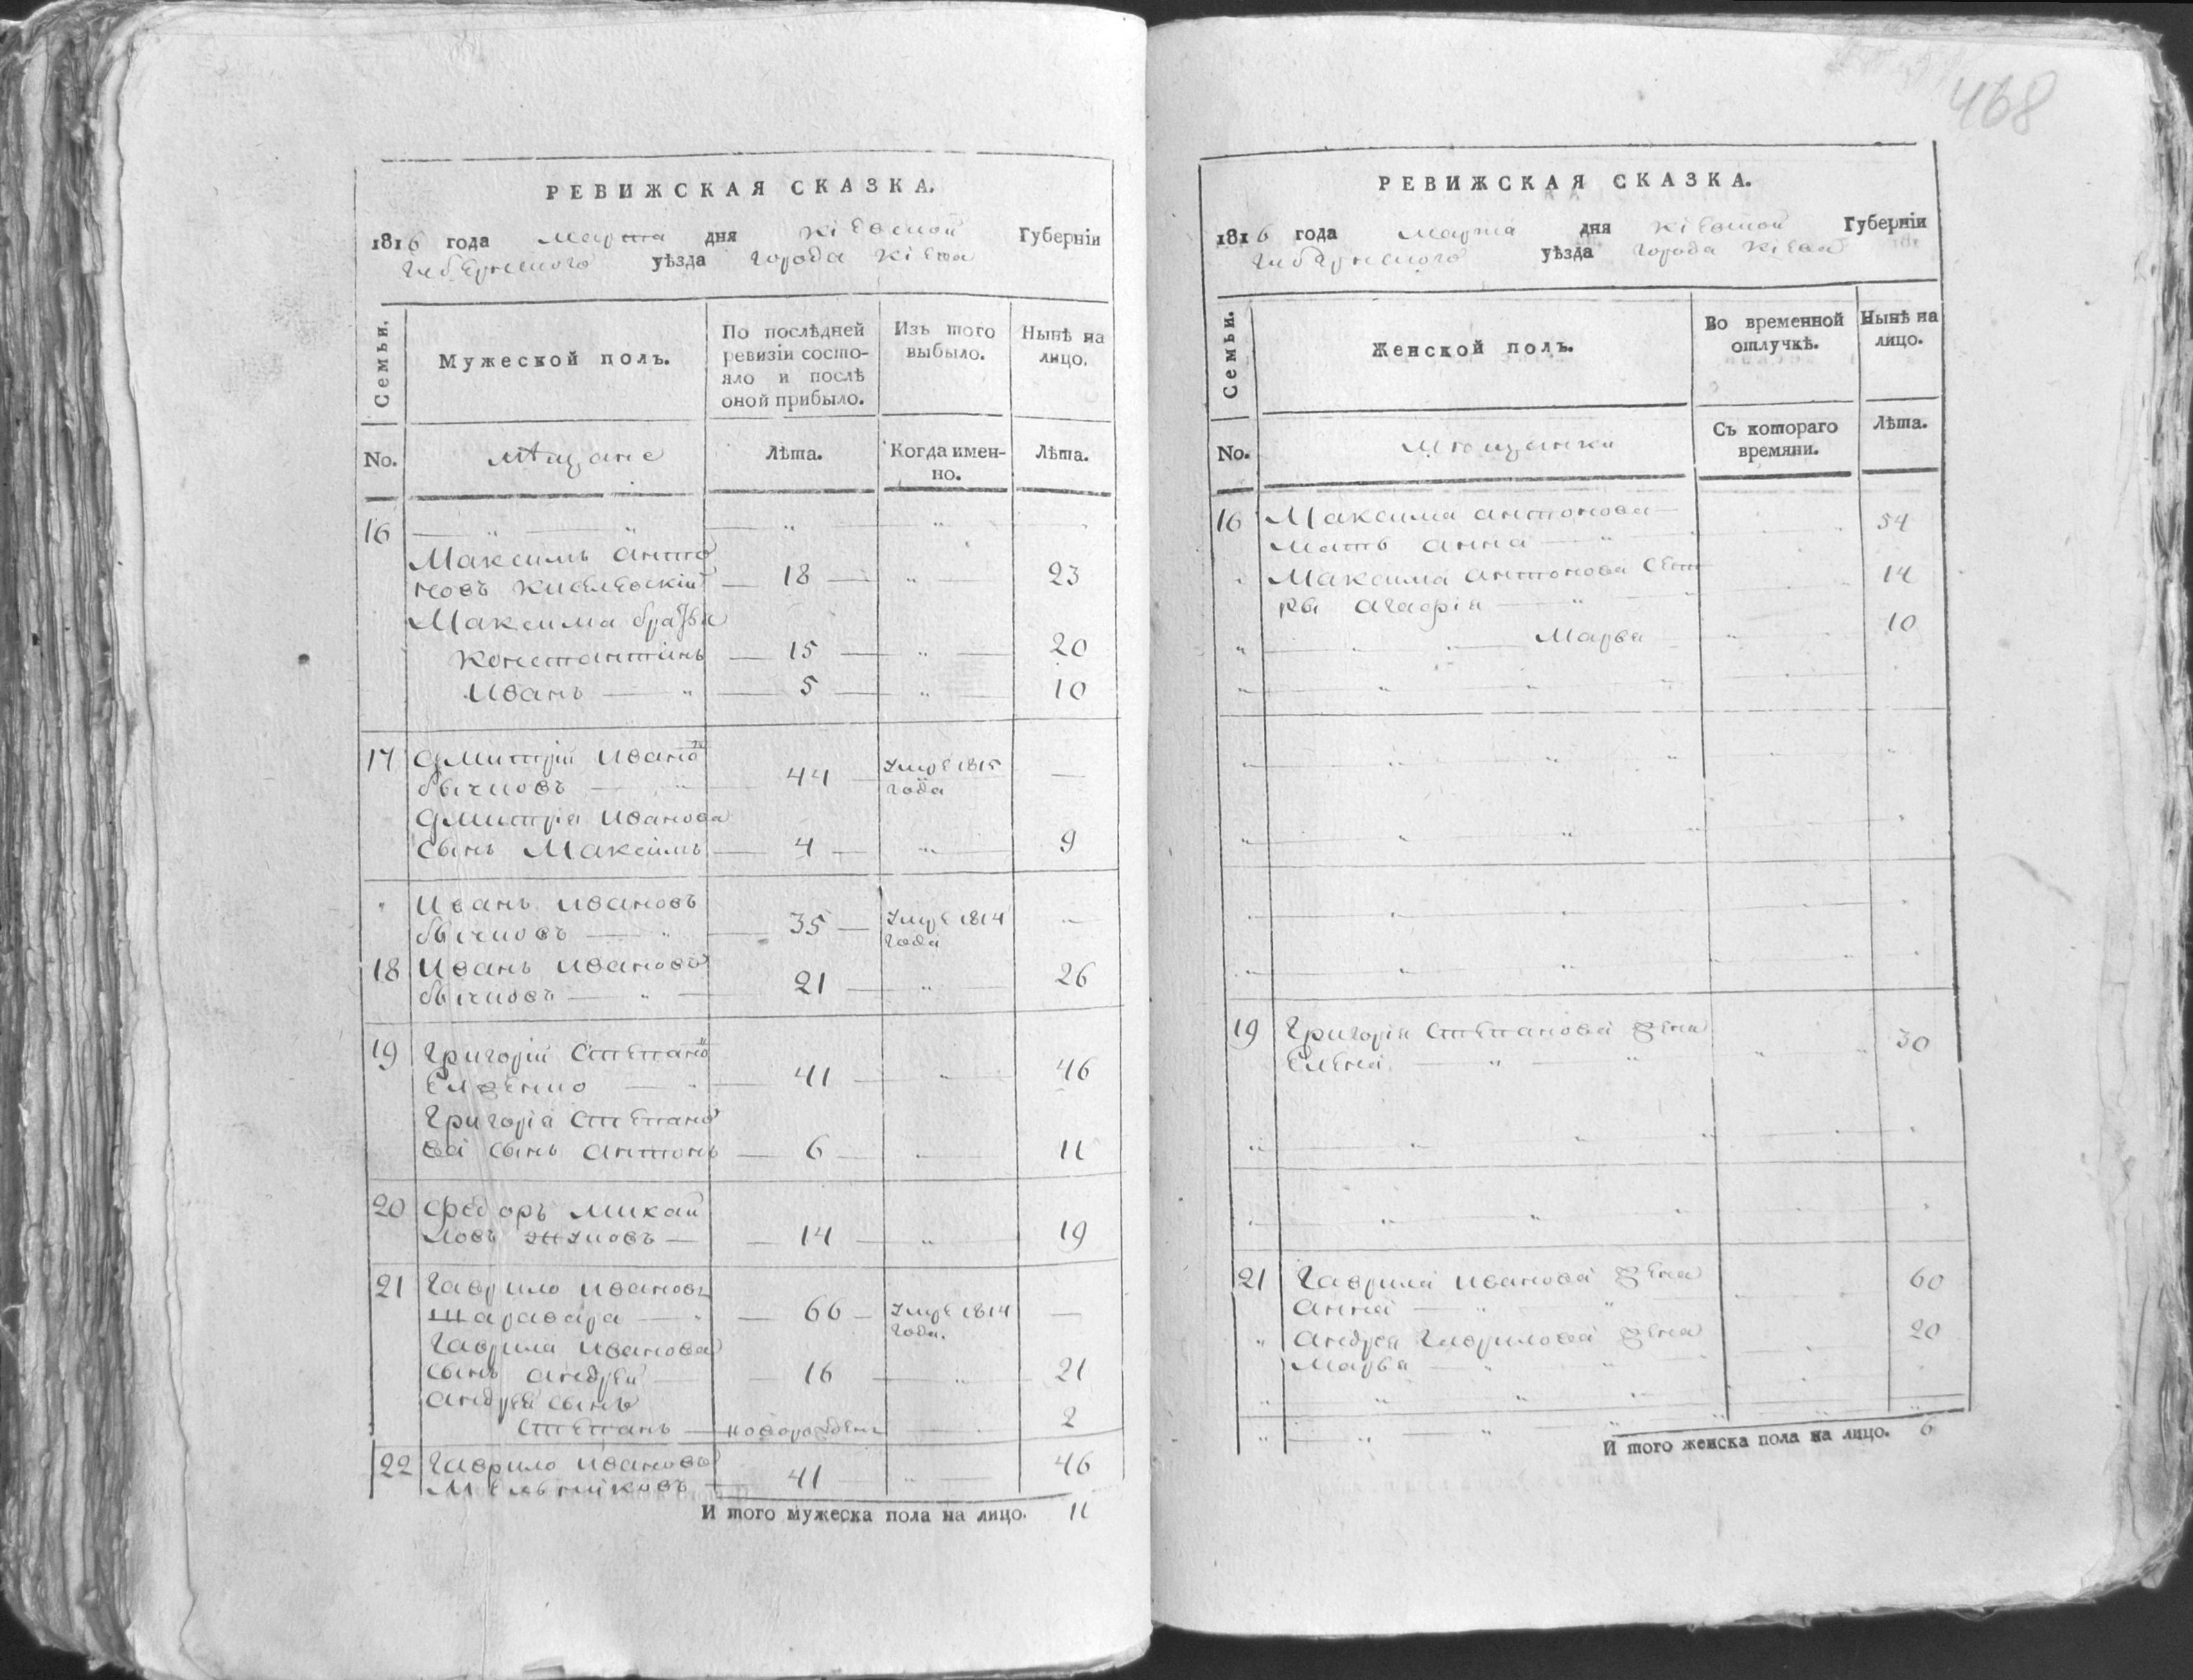 468
РЕВИЖСКАЯ СКАЗКА.
1816 года марта дня Кіевской Губерніи
уѣзда города Кіева
Семьи.
Мужеской полъ.
По послѣдней ревизіи состо-
яло и послѣ
оной прибыло.
Изъ того выбыло.
Нынѣ на лицо.
No. мѣщане Лѣта. Когда имен-
но. Лѣта.
16
Максимъ Анто
новъ Киселевскій 18 23
Максима братья
Константинъ 15 20
Иванъ 5 10
17 Дмитрій Ивано
бычковъ 44 Умре 1815
года
Дмитрія Иванова
сынъ Максимъ 4 9
Иванъ Ивановъ
бычковъ 35 Умре 1814
года
18 Иванъ Ивановъ
бычковъ 21 26
19 Григорій Степано
41 46
Григорія Степано
ва сынъ Антонъ 6 11
20 Федоръ Михай
ловъ 14 19
21 Гаврило Ивановъ
Шаравара 66 Умре 1814
года.
Гаврила Иванова
сынъ Андрей 16 21
Андрея сынъ
Степанъ новорожденъ 2
22 Гаврило Ивановъ
Мельниковъ 41 46
И того мужеска пола на лицо. 11
РЕВИЖСКАЯ СКАЗКА.
1816 года марта дня Кіевской Губерніи
уѣзда города Кіева
Семьи.
Женской полъ.
Во временной
отлучкѣ.
Нынѣ на
лицо.
No. мѣщанки Съ котораго
времяни. Лѣта.
16 Максима Антонова
мать Анна 54
Максима Антонова сест
ры Агафія 14
Марья 10
19 Григорія Степанова жена
Елена 30
21 Гаврила Иванова жена
Анна 60
Андрея Гаврилова жена
Марья 20
И того женска пола на лицо. 6